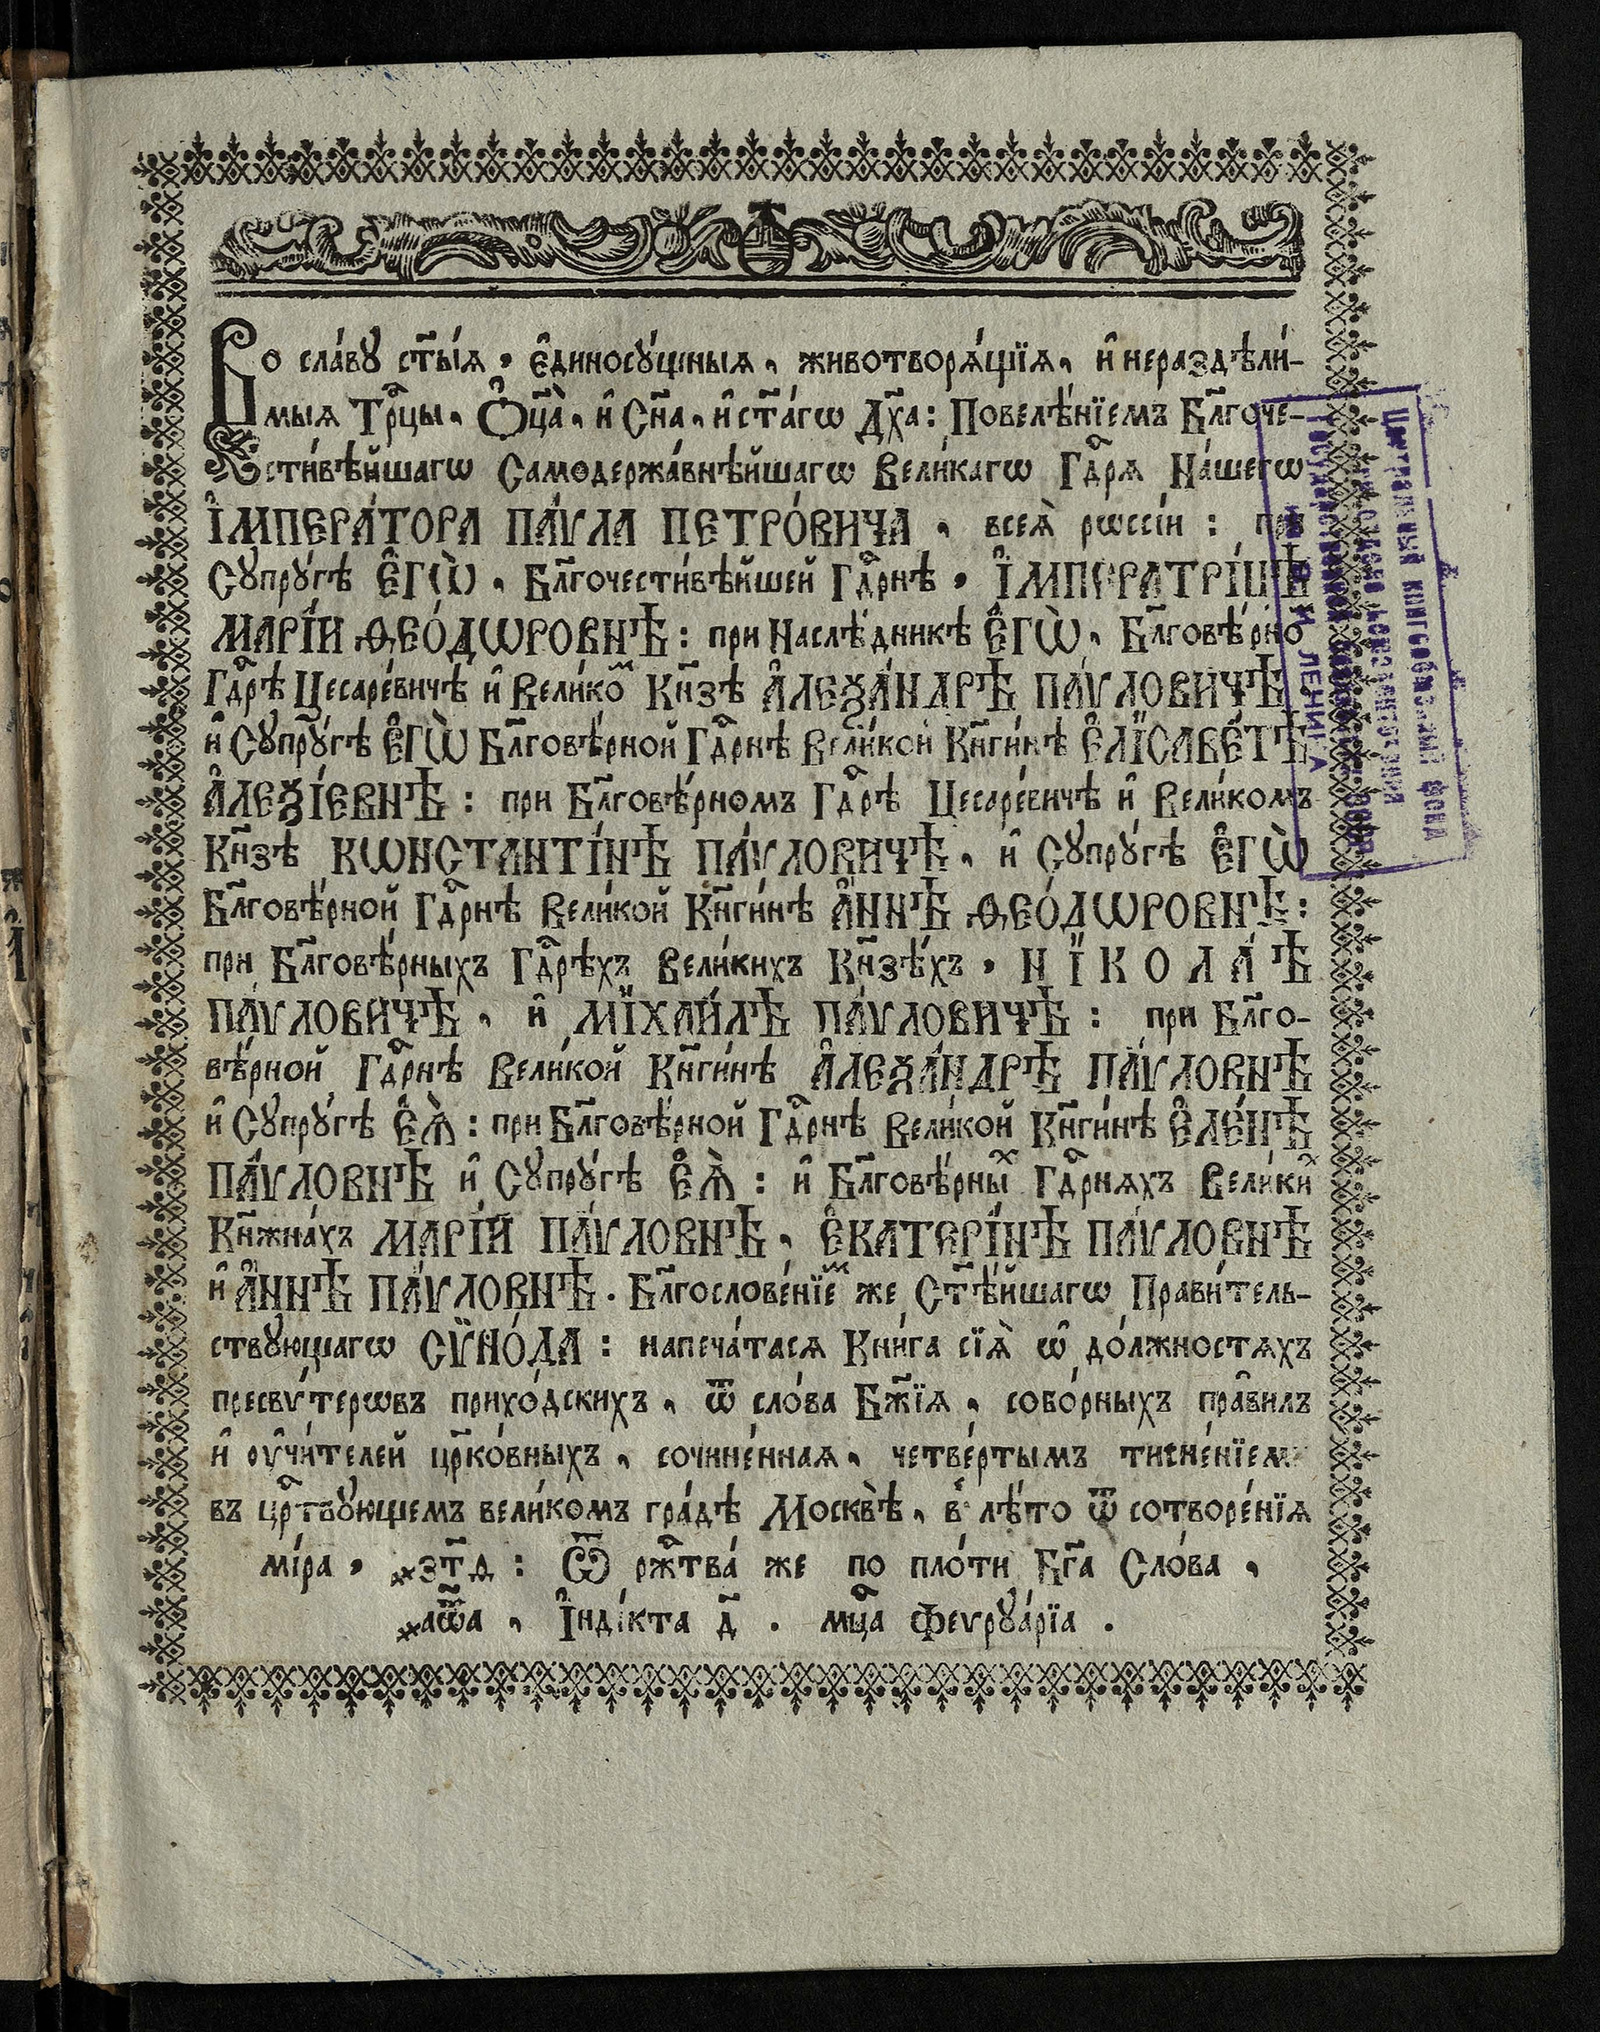 Во сла́ву ст҃ы́ѧ, є҆диносꙋ́щныѧ, животворѧ́щїѧ, и҆ нераздѣли́-
мыѧ Трⷪ҇цы, Ѻ҆ц҃а̀, и҆ Сн҃а, и҆ ст҃а́гѡ Дх҃а: Повелѣ́нїемъ Бл҃гоче-
сти́вѣйшагѡ Самодержа́внѣйшагѡ Вели́кагѡ Гдⷭ҇рѧ На́шегѡ
І҆МПЕРА́ТОРА ПА́ѴЛА ПЕТРО́ВИЧА, всеѧ̀ рѡссі́и: при
Сꙋпрꙋ́гѣ Є҆ГѠ̀, Бл҃гочести́вѣйшей Гдⷭ҇рнѣ, І҆МПЕРАТРІ́ЦѢ
МАРІ́И ѲЕО́ДѠРОВНѢ: при Наслѣ́дникѣ Є҆ГѠ̀, Бл҃говѣ́рно
Гдⷭ҇рѣ Цесаре́вичѣ и҆ Вели́коⷨ Кн҃зѣ А҆ЛЕѮА́НДРѢ ПА́ѴЛОВИЧѢ
и҆ Сꙋпрꙋ́гѣ Є҆ГѠ̀ Бл҃говѣ́рной Гдⷭ҇рнѣ Вели́кой Кн҃ги́нѣ Є҆ЛЇСАВЕ́ТѢ
А҆ЛЕѮІ́ЕВНѢ: при Бл҃говѣ́рномъ Гдⷭ҇рѣ Цесаре́вичѣ и҆ Вели́комъ
Кн҃зѣ КѠНСТАНТІ́НѢ ПА́ѴЛОВИЧѢ, и҆ Сꙋпрꙋ́гѣ Є҆ГѠ̀
Бл҃говѣ́рной Гдⷭ҇рнѣ Вели́кой Кн҃ги́нѣ А҆́ННѢ ѲЕО́ДѠРОВНѢ:
при Бл҃говѣ́рныхъ Гдⷭ҇рѣхъ Вели́кихъ Кн҃зѣ́хъ, НЇКОЛА́Ѣ
ПА́ѴЛОВИЧѢ, и҆ МЇХАИ́ЛѢ ПА́ѴЛОВИЧѢ: при Бл҃го-
вѣ́рной Гдⷭ҇рнѣ Вели́кой Кн҃ги́нѣ А҆ЛЕѮА́НДРѢ ПА́ѴЛОВНѢ
и҆ Сꙋпрꙋ́гѣ Є҆Ѧ̀: при Бл҃говѣ́рной Гдⷭ҇рнѣ Вели́кой Кн҃ги́нѣ Є҆ЛЕ́НѢ
ПА́ѴЛОВНѢ и҆ Сꙋпрꙋ́гѣ Є҆Ѧ̀: и҆ Бл҃говѣ́рныⷯ Гдⷭ҇рнѧхъ Вели́киⷯ
Кн҃жна́хъ МАРІ́И ПА́ѴЛОВНѢ, Є҆КАТЕРІ́НѢ ПА́ѴЛОВНѢ
и҆ А҆́ННѢ ПА́ѴЛОВНѢ. Бл҃гослове́нїеⷨ же Ст҃ѣ́йшагѡ Прави́тель-
ствꙋющагѡ СѴ̈НО́ДА: напеча́тасѧ Кни́га сїѧ̀ ѡ҆ до́лжностѧхъ
пресвѵ́терѡвъ прихо́дскихъ, ѿ сло́ва Бж҃їѧ, собо́рныхъ пра́вилъ
и҆ ᲂу҆чи́телей цр҃ко́вныхъ, сочине́ннаѧ, четве́ртымъ тисне́нїемъ
въ црⷭ҇твꙋющемъ вели́комъ гра́дѣ Москвѣ̀, в̾ лѣ́то ѿ сотворе́нїѧ
мі́ра, ҂зт҃д: Ѿ ржⷭ҇тва́ же по пло́ти Бг҃а Сло́ва,
҂аѿ҃а, І҆нді́кта д҃. мцⷭ҇а Феѵрꙋа́рїа.
ЛЕНИНА